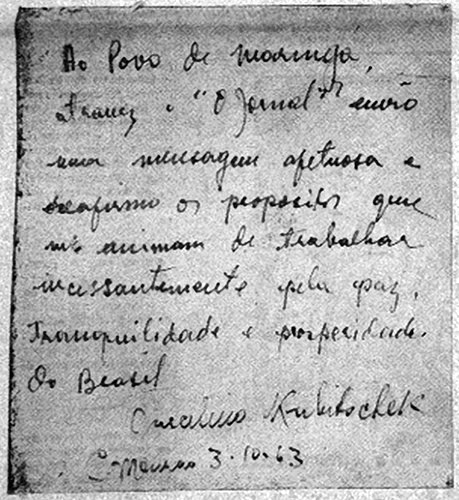 Ao Povo de Maringá,
atravez "O Jornal" envio
uma mensagem afetuosa e
reafirmo os propositos que
me animam de trabalhar
incessantemente pela paz,
tranquilidade e prosperidade
do Brasil
Juscelino Kubitschek
3-10-63